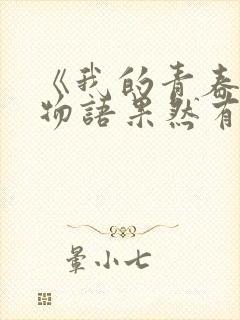 《我的青春
物語果然有
暈小七